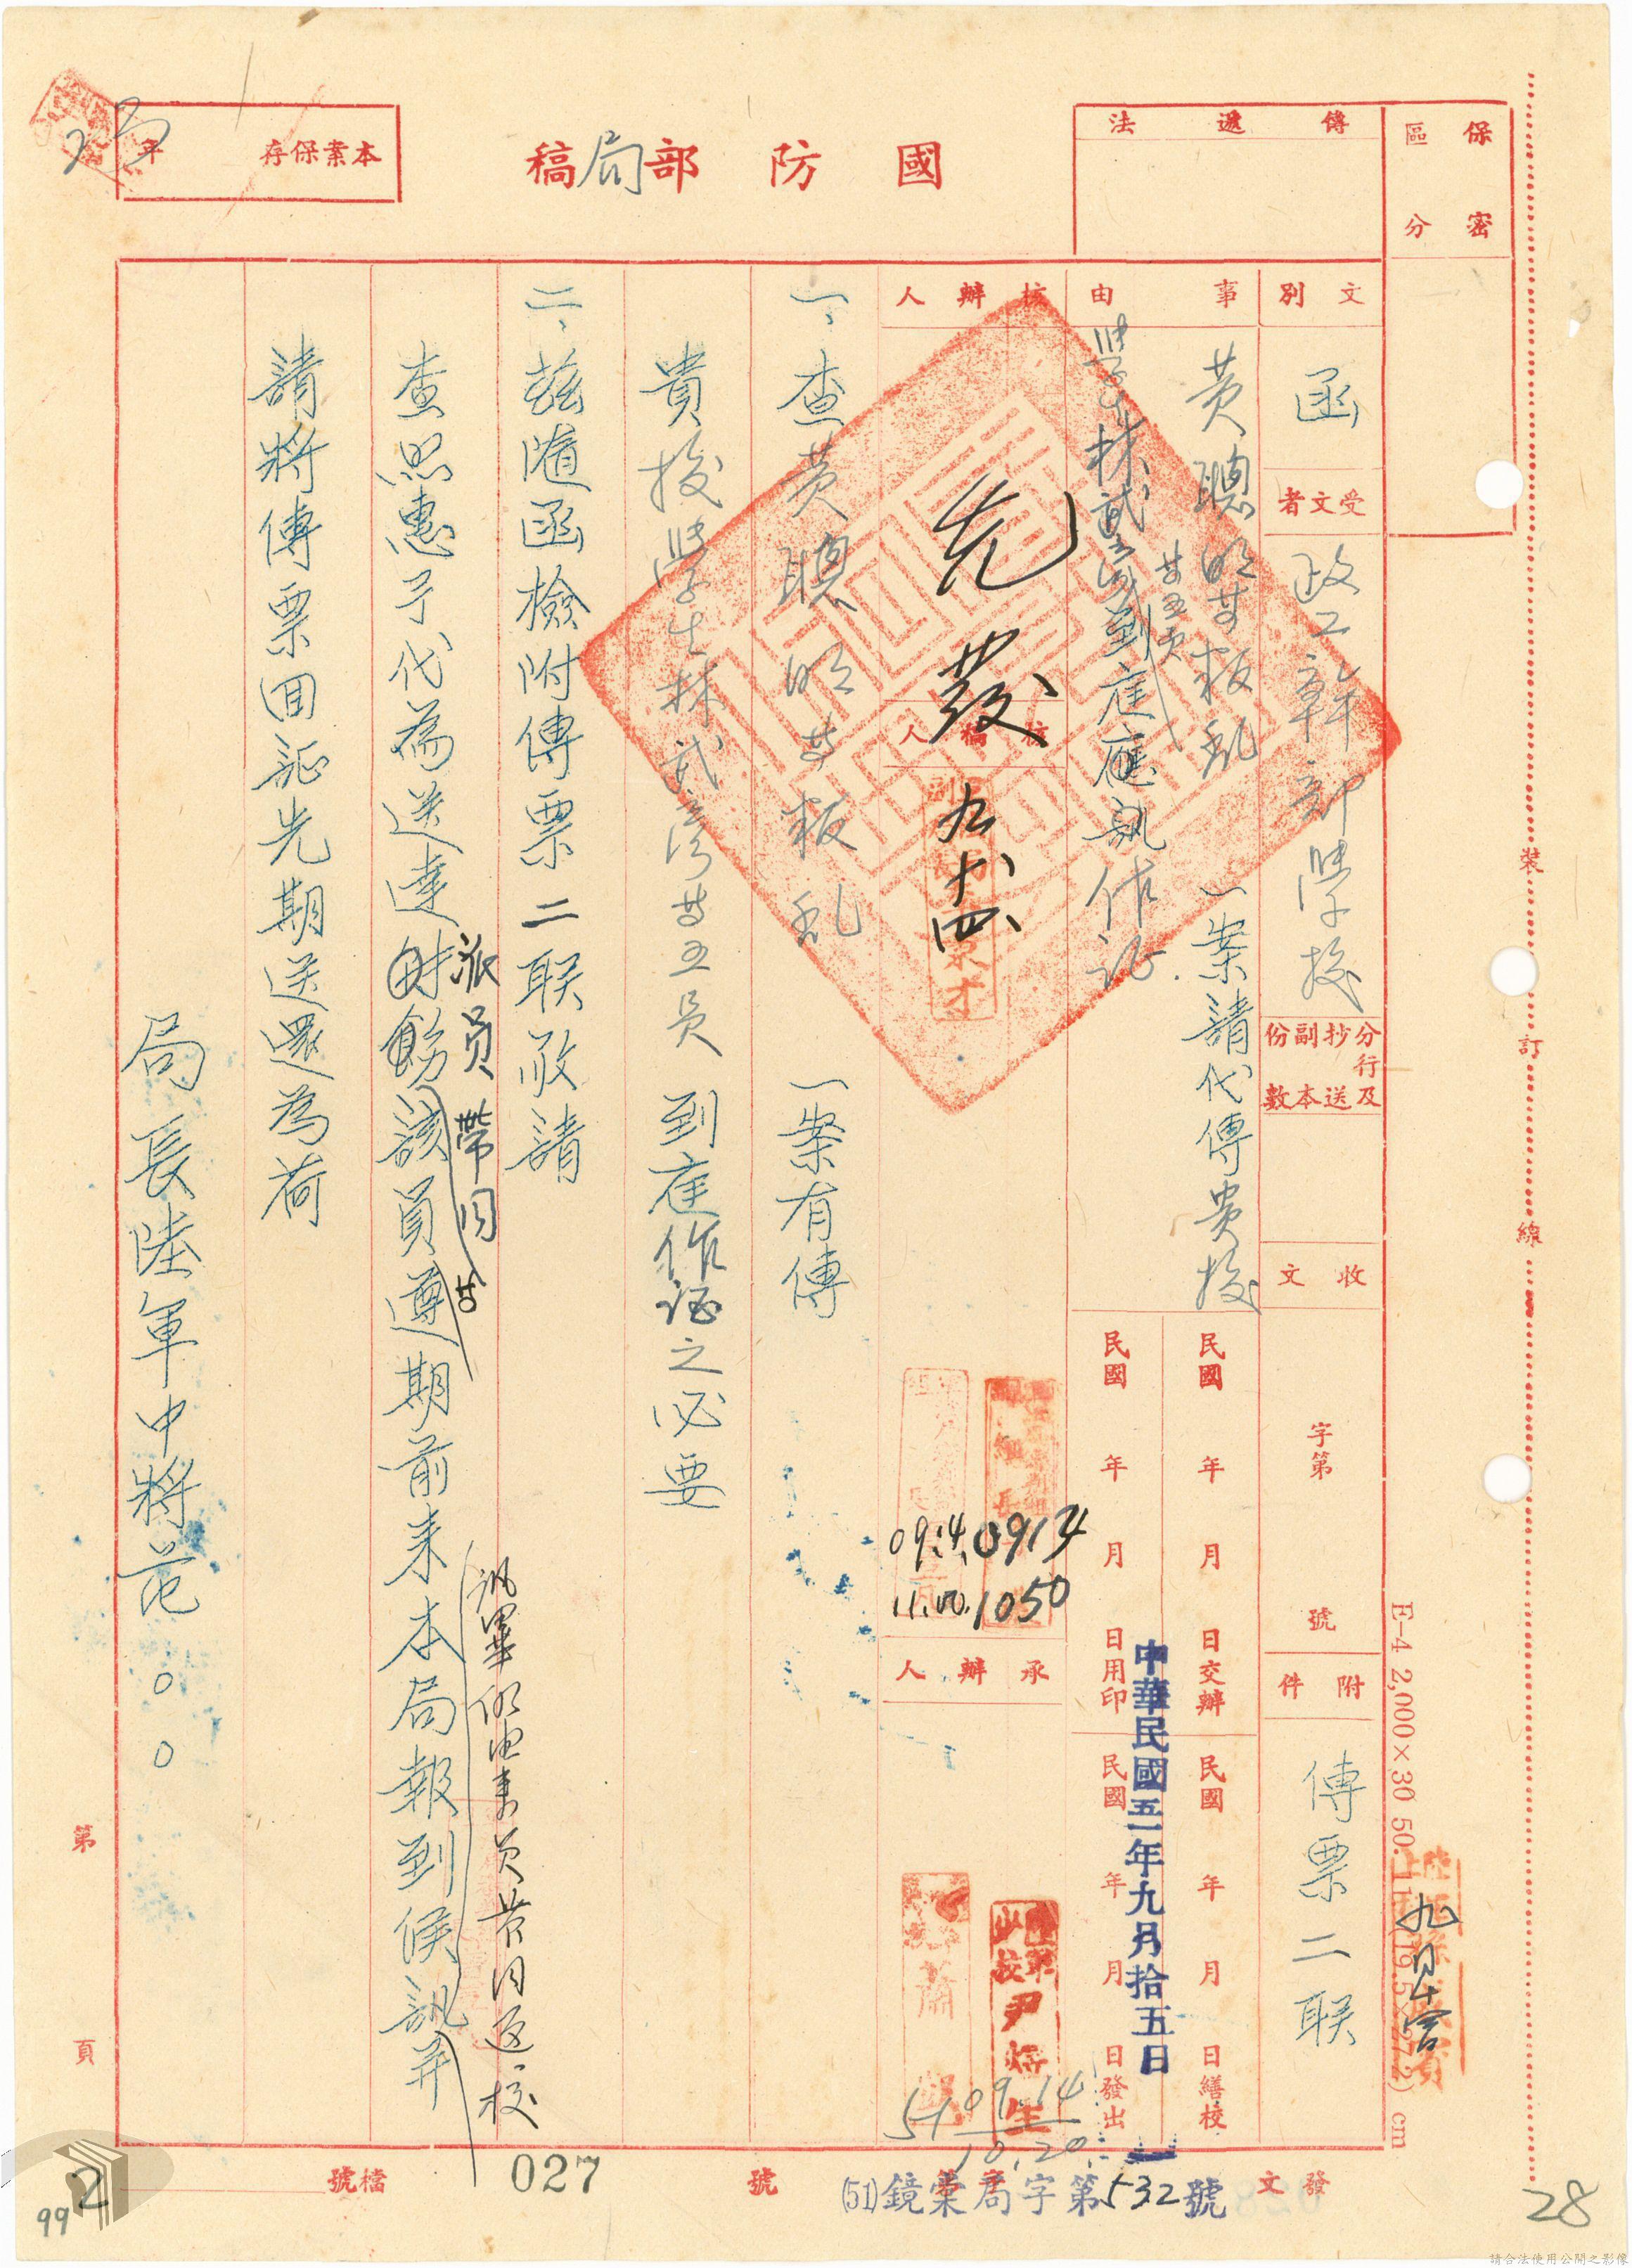 保密
區分
傳遞法
國防部局稿
本案保存 年
文別
函
受文者
政工幹部學校
分行及
抄送
副本
份數
收文
字第 號
附件
傳票二联
事由
黄聰明等叛乱 一案請代傳貴校
學生林武
等五員
到庭應訊作証
民國 年 月 日交辦
民國 年 月 日繕校
民國 年 月 日用印
民國 年 月 日發出
中華民國五一年九月拾五日
核辦人
先發
九十四
核稿人
0914
1050
09.14.
11.00.
承辦人
陸軍
少校 尹
51 09.14
10.20
一、查黄聰明等叛乱 一案有傳
貴校學生林武 等五員 到庭作證之必要
二、茲隨函檢附傳票二联敬請
查照惠予代為送達 飭該員遵期前来本局報到候訊并
派員帶同
訊畢仍由来員 同返校
請將傳票回証先期送還為荷
局長陸軍中將范○○
裝訂線
E-4 2,000×30 50.11.(19.5×27.2)cm
第 頁
發文
(51)鏡棠局字第532號
號
027
檔號
2
99
28
請合法使用公開之影像